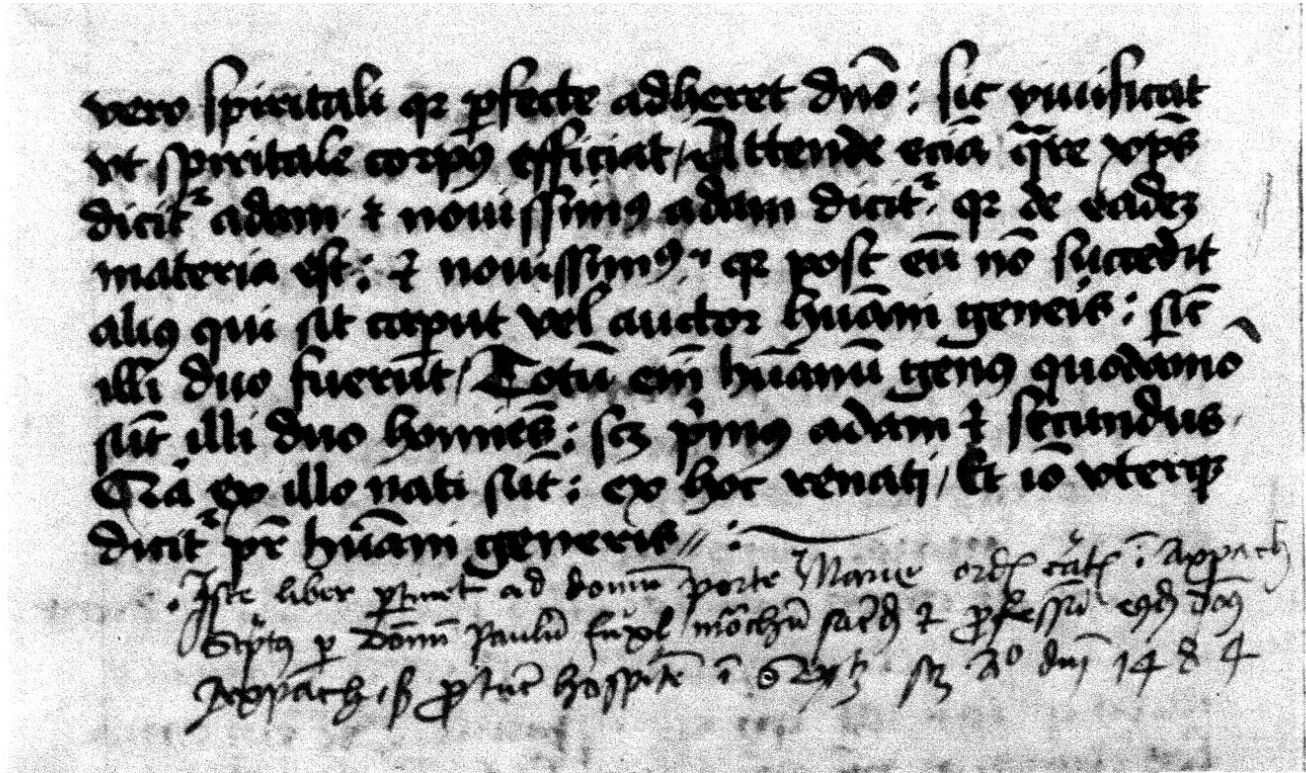 vero spiritali qr p̱fecte adheret dn̄o : sic viuificat
vt spiritale corpꝰ efficiat / Attende eciā q̄re xp̄s
dicit᷑ adam ⁊ nouissimꝰ adam dicit᷑ . qr de eadeȝ
materia est : ⁊ nouissimꝰ qr post eū nō succedit
aliꝰ qui sit caput vel auctor hūani gen̄is : sic̄
illi duo fuerūt / Totū em̄ hūanū genꝰ quodāmō
sūt illi duo homīes : scȝ pͥmꝰ adam ⁊ secundus .
Qͥa ex illo nati sūt : ex hoc renati / Et iō vterqꝫ
dicit᷑ pr̄ hūani generis // :
. Iste liber ꝑtinet ad domū porte Marie ord carᵗ ī Axpach
Scͥptꝰ ꝑ Domnū Paulū mōchū sac̄d ⁊ ꝓfessū eiꝰd domꝰ
Axpach , ꝓ tūc hospitē ī scȝ A° dn̄i 1484